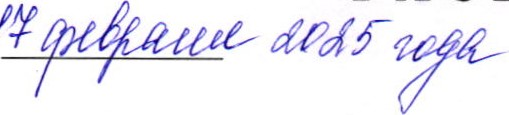 17 февраля 2025 года